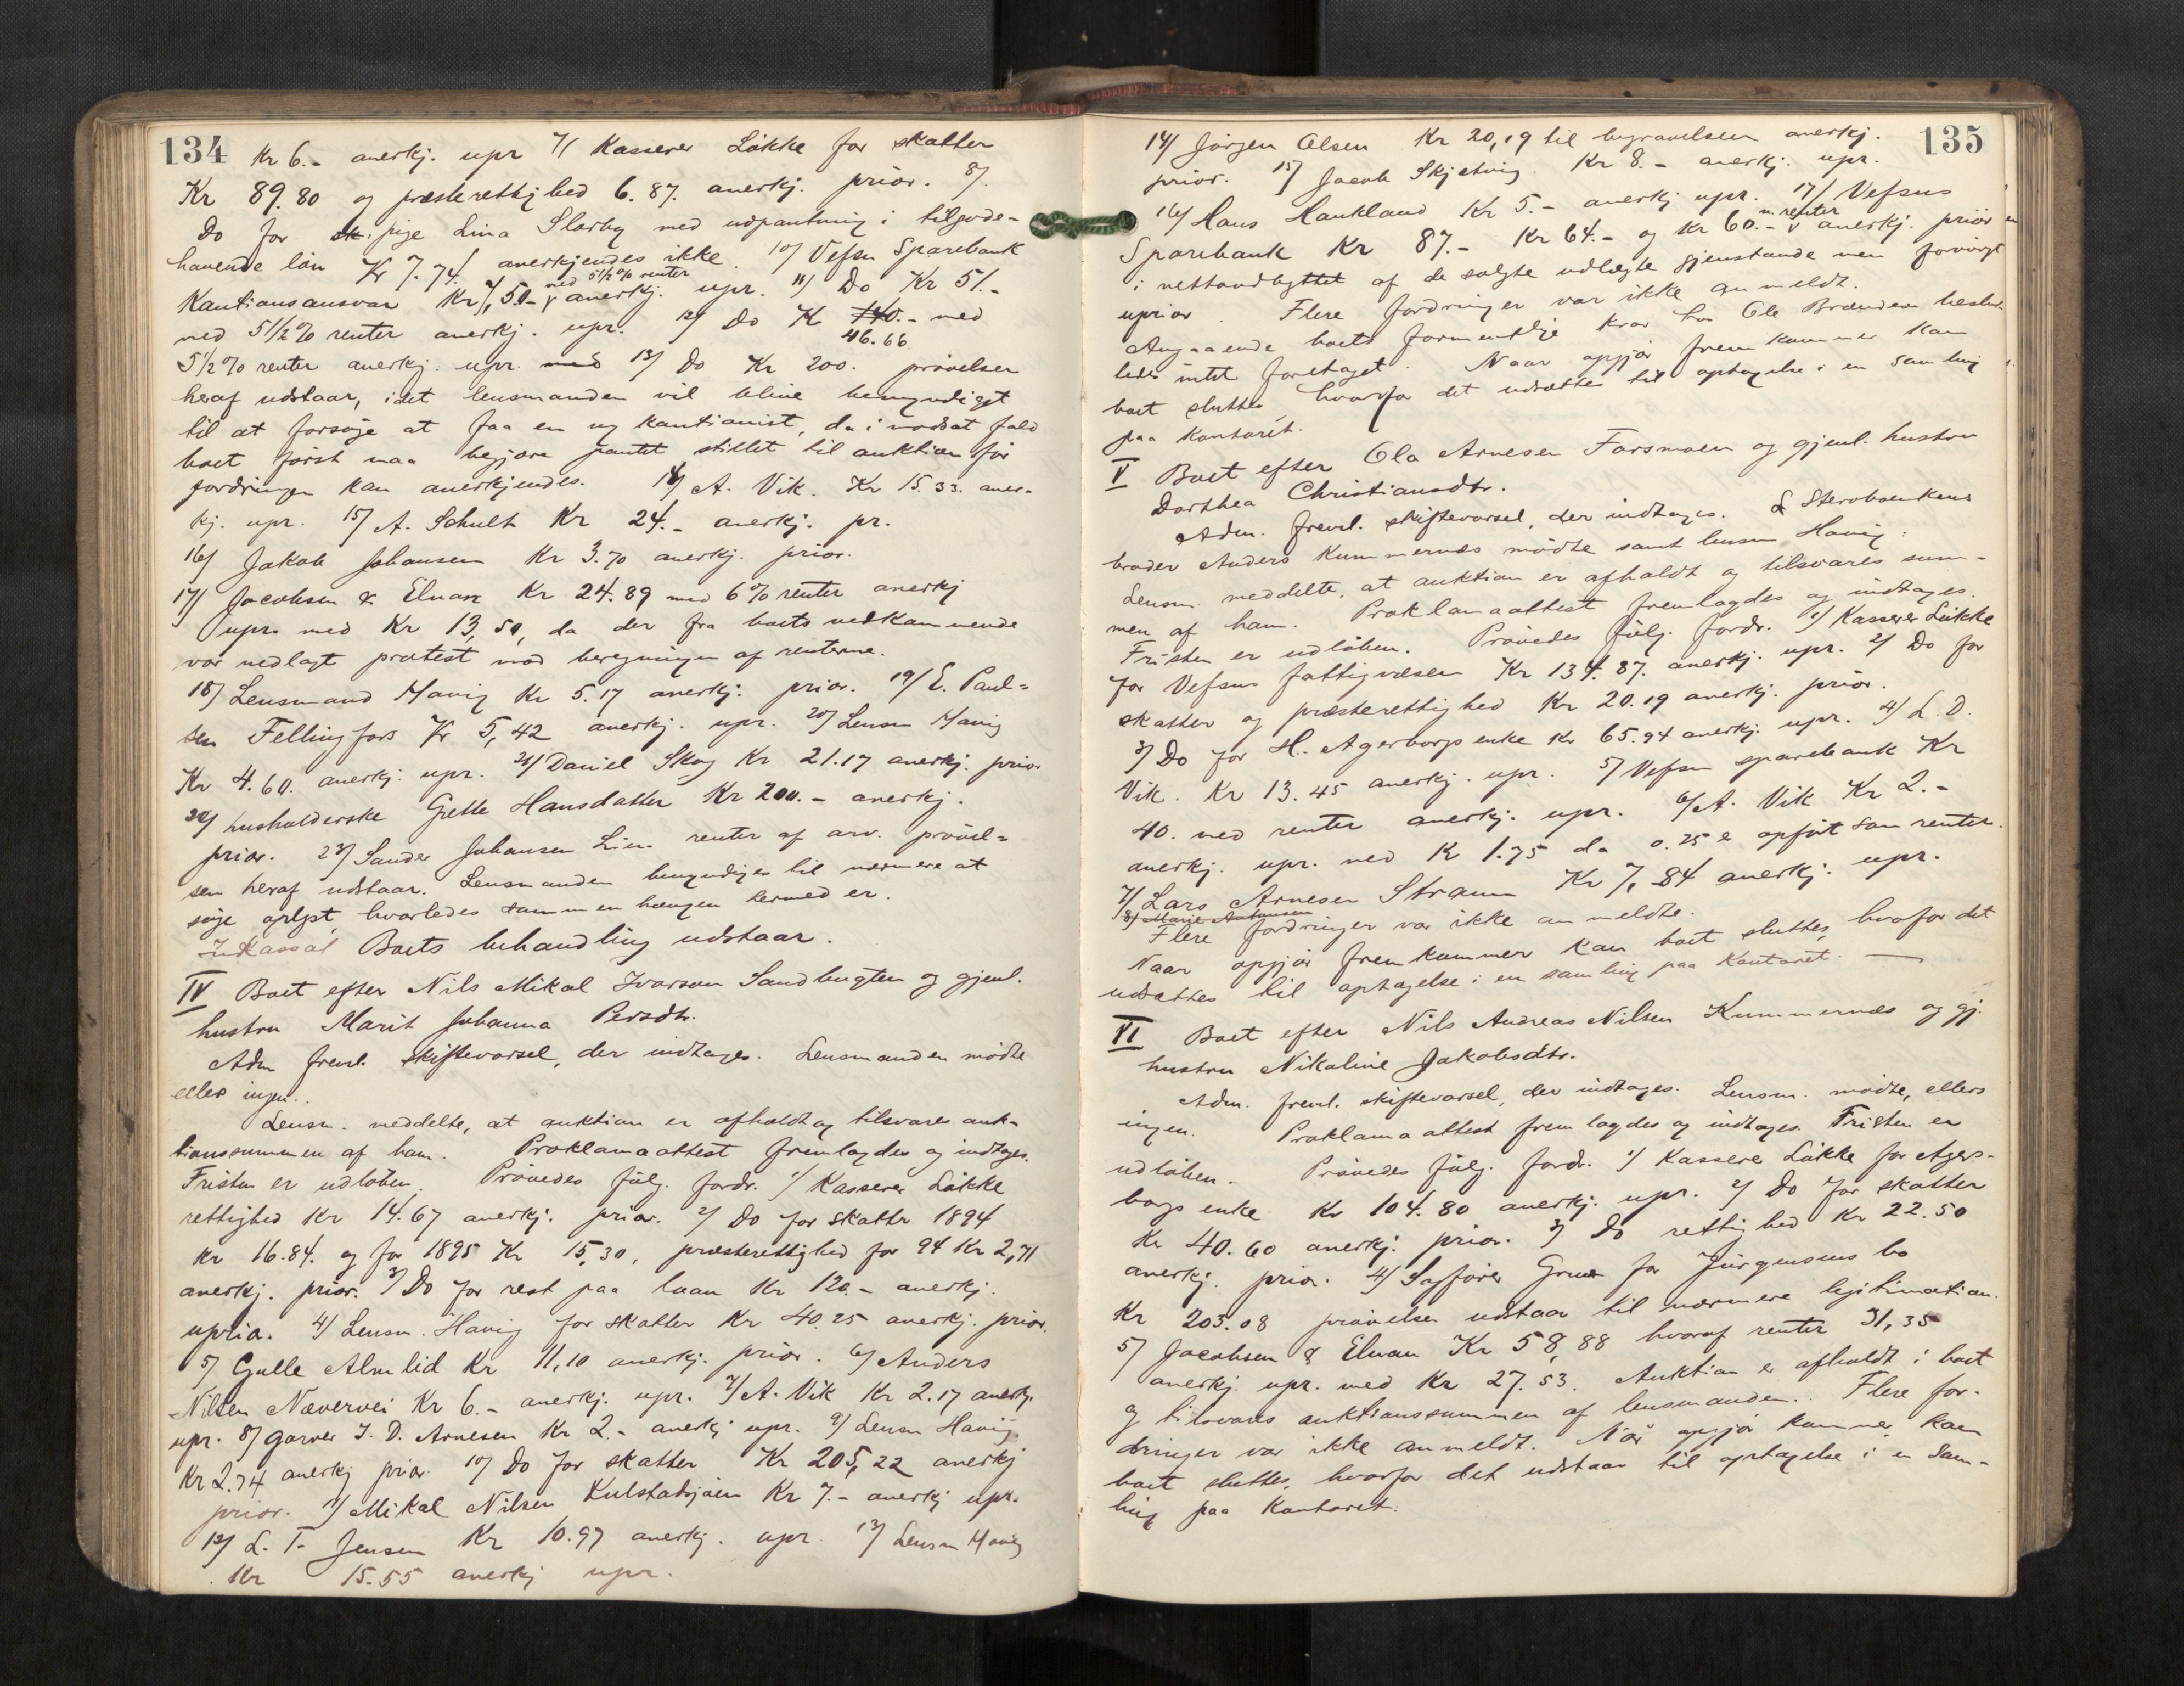 134
Kr 6.- anerkj. upr 7/ Kasserer Løkke for skatter
Kr 89.80 og præsterettighed 6.87. anerkj. prior. 8/
Do for pige Lina med udpantning i tilgode-
havende løn Kr 7.74. anerkjendes ikke. 10/ Vefsn Sparebank
med 5 1/2 % renter
Kautionsansvar Kr 7,50- anerkj. upr. 11/ Do Kr 51.-
med 5 1/2 % renter anerkj. upr. 12/ Do K 140.- med
46.66
5 1/2 % renter anerkj. upr. med 13/ Do Kr 200. prøvelsen
heraf udstaar, idet lensmanden vil blive bemyndiget
til at forsøge at faa en ny kautionist, da i modsat fald
boet først maa begjære pantet stillet til auktion før
fordringen kan anerkjendes. 14/ A. Vik. Kr 15.33. aner-
kj. upr. 15/ A. Schult Kr 24.- anerkj. pr.
16/ Jakob Johansen Kr 3.70 anerkj. prior.
17/ Jacobsen & Elnan Kr 24.89 med 6 % renter anerkj
upr. med Kr 13,50, da der fra boets vedkommende
var nedlagt protest mod beregningen af renterne.
18/ Lensmand Havig Kr 5.17 anerkj. prior. 19/ E. Paul-
sen Fellingfors Kr 5,42 anerkj. upr. 20/ Lensm Havig
Kr 4.60. anerkj. upr. 21/ Daniel Skog Kr 21.17 anerkj. prior
22/ husholderske Grette Hansdatter Kr 200.- anerkj.
prior. 23/ Sander Johansen Lien renter af arv. prøvel-
sen heraf udstaar. Lensmanden bemyndiges til nærmere at
søge oplyst, hvorledes sammenhængen hermed er.
Inkassat Boets behandling udstaar.
IV Boet efter Nils Mikal Ivarson Sandbugten og gjenl.
hustru Marit Johanna Persdtr.
Adm freml. skiftevarsel, der indtages. Lensmanden mødte
ellers ingen.
Lensm. meddelte, at auktion er afholdt og tilsvares auk-
tionssummen af ham. Proklamaattest fremlagdes og indtages.
Fristen er udløben. Prøvedes følg. fordr. 1/ Kasserer Løkke
rettighed Kr 14.67 anerkj. prior. 2/ Do for skatter 1894
Kr 16.84. og for 1895 Kr 15,30, præsterettighed for 94 Kr 2,71
anerkj. prior. 3/ Do for rest paa laan Kr 120.- anerkj.
uprior. 4/ Lensm. Havig for skatter Kr 40.25 anerkj. prior.
5/ Gulle Almlid Kr 11,10 anerkj. prior. 6/ Anders
Nilsen Nævervei Kr 6.- anerkj. upr. 7/ A. Vik Kr 2.17 anerkj.
upr. 8/ garver I. D. Arnesen Kr 2.- anerkj upr. 9/ Lensm Havig
Kr 2.74 anerkj prior. 10/ Do for skatter Kr 205,22 anerkj
prior. 11/ Mikal Nilsen Kulstadsjøen Kr 7.- anerkj upr.
12/ L. T. Jensen Kr 10.97 anerkj. upr. 13/ Lensm Havig
Kr 15.55 anerkj upr.
135
14/ Jørgen Olsen Kr 20,19 til begravelsen anerkj.
prior. 15/ Jacob Skjetvig Kr 8.- anerkj. upr.
16/ Hans Haukland Kr 5.- anerkj upr. 17/ Vefsns
m. renter
Sparebank Kr 87.- Kr 64.- og Kr 60.- anerkj. prior
i nettoudbyttet af de solgte udlagte gjenstande men forøvrigt
uprior. Flere fordringer var ikke anmeldt.
Angaaende boets formentlige krav hos Ole Brændeson beslut-
tedes intet foretaget. Naar opgjør fremkommer kan
boet sluttes, hvorfor det udsættes til optagelse i en samling
paa Kontoret.
V Boet efter Ola Arnesen Forsmoen og gjenl. hustru
Dorthea Christiansdtr.
Adm. freml. skiftevarsel, der indtages. Stervboenkens
broder Anders Kummernæs mødte samt lensm Havig.
Lensm. meddelte, at auktion er afholdt og tilsvares sum-
men af ham. Proklamaattest fremlagdes og indtages.
Fristen er udløben. Prøvedes følg. fordr. 1/ Kasserer Løkke
for Vefsns fattigvæsen Kr 134.87. anerkj. upr. 2/ Do for
skatter og præsterettighed Kr 20.19 anerkj. prior.
3/ Do for H. Agerborgs enke Kr 65.94 anerkj. upr. 4/ L. D.
Vik. Kr 13.45 anerkj. upr. 5/ Vefsn sparebank Kr
40. med renter anerkj. upr. 6/ A. Vik Kr 2.-
anerkj. upr. med K 1.75 da 0.25 e opført som renter.
7/ Lars Arnesen Straum Kr 7,84 anerkj. upr.
8/ Marie
Flere fordringer var ikke anmeldte.
Naar opgjør fremkommer kan boet sluttes, hvofor det
udsættes til optagelse i en samling paa Kontoret. —
VI Boet efter Nils Andreas Nilsen Kummernæs og gj.
hustru Nikoline Jakobsdtr.
Adm. freml. skiftevarsel, der indtages. Lensm. mødte, ellers
ingen. Proklamaattest fremlagdes og indtages. Fristen er
udløben. Prøvedes følg. fordr. 1/ Kasserer Løkke for Ager-
borgs enke Kr 104.80 anerkj. upr. 2/ Do for skatter
Kr 40.60 anerkj. prior. 3/ Do rettighed Kr 22.50
anerkj. prior. 4/ Sagfører Grue for Jürgensens bo
Kr 203.08 prøvelsen udstaar til nærmere legitimation.
5/ Jacobsen & Elnan Kr 58,88 hvoraf renter 31,35
anerkj. upr. med Kr 27.53. Auktion er afholdt i boet
og tilsvares auktionssummen af lensmanden. Flere for-
dringer var ikke anmeldt. Når opgjør kommer kan
boet sluttes, hvorfor det udstaar til optagelse i en sam-
ling paa Kontoret.